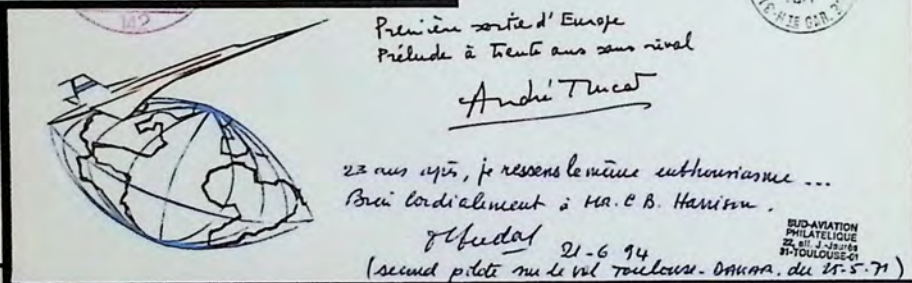 142
Première sortie d'Europe
Prélude à trente ans sans rival
André Turcat
23 ans après, je ressens le même enthousiasme ...
Bien cordialement à MR. C B. Harrison.
21-6 94
(second pilote sur le vol Toulouse-DAKAR, du 25-5-71)
SUD-AVIATION
PHILATELIQUE
22, all. J.-Jaurès
31-TOULOUSE-01
31-Hte GAR.